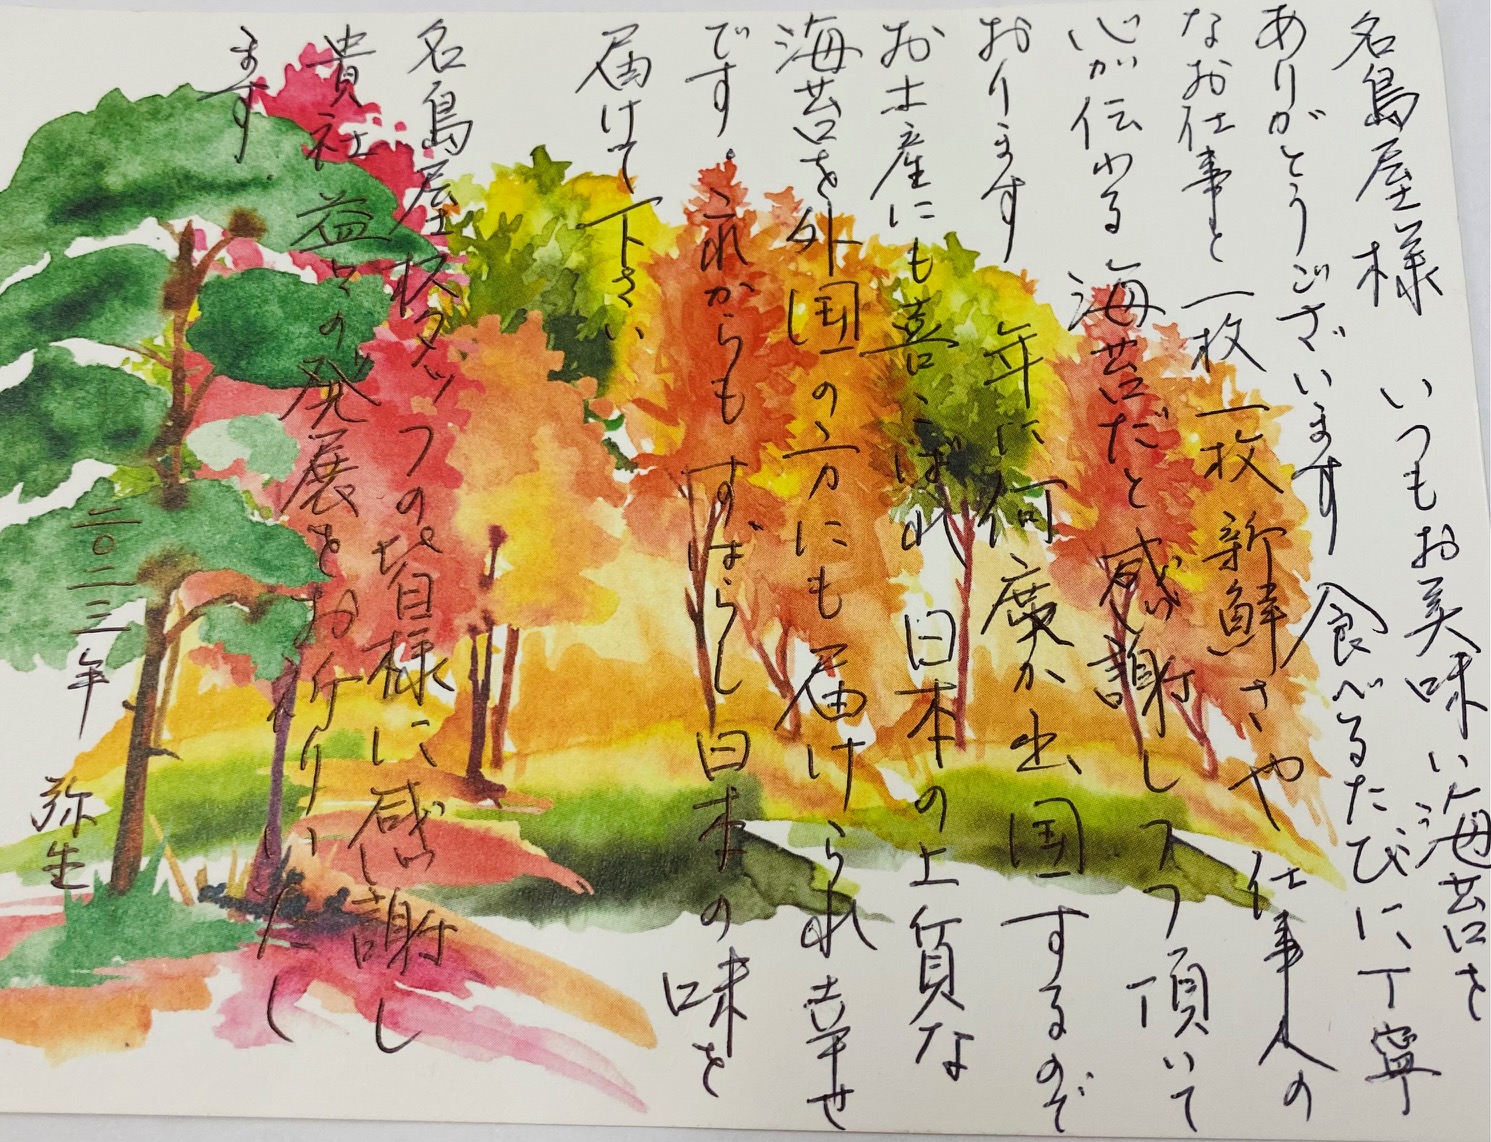 名島屋様 いつもお美味い海苔を
ありがとうございます 食べるたびに丁寧
なお仕事と一枚一枚新鮮さや仕事人の
心が伝わる海苔だと感謝しつつ頂いて
おります 年に何度か出国するので
お土産にも喜こばれ日本の上質な
海苔を外国の方にも届けられ幸せ
です。これからもすばらし日本の味を
届けて下さい
名島屋スタッフの皆様に感謝し
貴社益々の発展をお祈りいたし
ます
二〇二三年 弥生